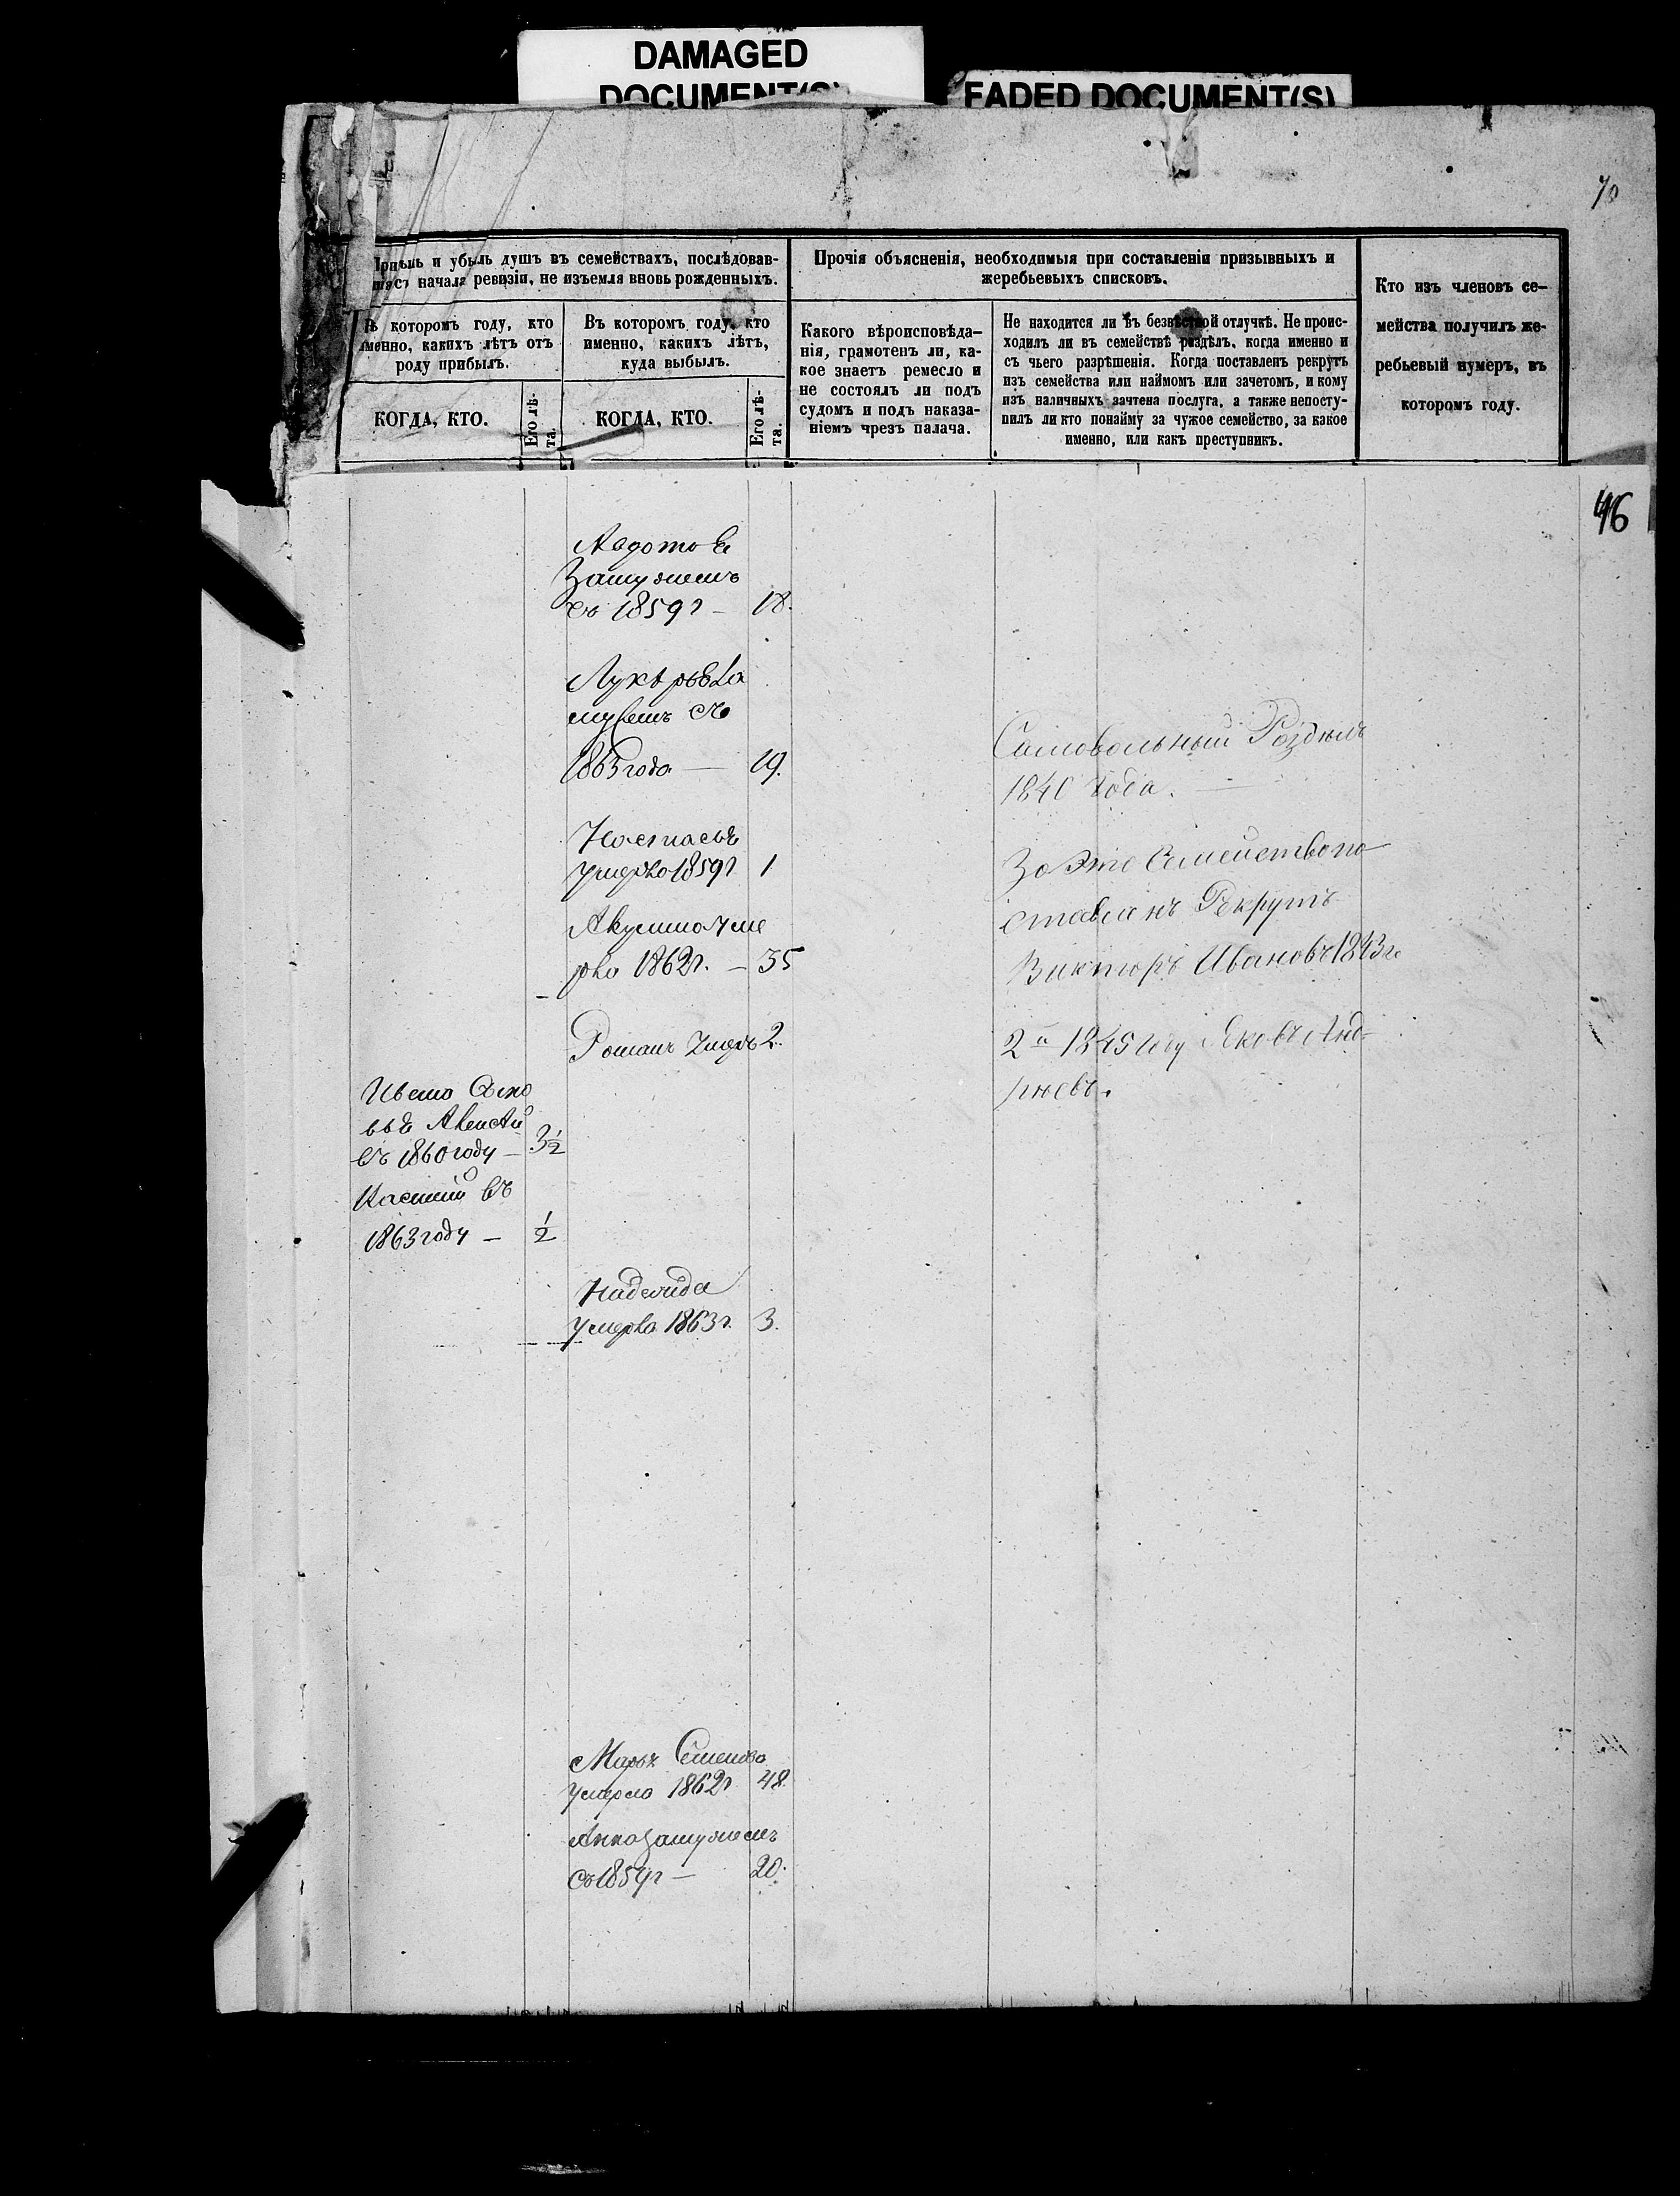 DAMAGED
DOCUMENT(S)
FADED DOCUMENT(S)
70
Прибыль и убыль душъ въ семействахъ, послѣдовав-
шія съ начала ревизіи, не изъемля вновь рожденныхъ.
Прочія объясненія, необходимыя при составленіи призывныхъ и
жеребьевыхъ списковъ.
Кто изъ членовъ се-
мейства получилъ же-
ребьевый нумеръ, въ
которомъ году.
Въ которомъ году, кто
именно, какихъ лѣтъ отъ
роду прибылъ.
Въ которомъ году, кто
именно, какихъ лѣтъ,
куда выбылъ.
Какого вѣроисповѣда-
нія, грамотенъ ли, ка-
кое знаетъ ремесло и
не состоялъ ли подъ
судомъ и подъ наказа-
ніемъ чрезъ палача.
Не находится ли въ безвѣстной отлучкѣ. Не проис-
ходилъ ли въ семействѣ раздѣлъ, когда именно и
съ чьего разрѣшенія. Когда поставленъ рекрутъ
изъ семейства или наймомъ или зачетомъ, и кому
изъ наличныхъ зачтена послуга, а также непосту-
пилъ ли кто понайму за чужое семейство, за какое
именно, или какъ преступникъ.
КОГДА, КТО.
Его лѣ-
та.
КОГДА, КТО.
Его лѣ-
та.
46
Авдотья
Замужемъ
съ 1859 г – 18.
Лукѣрья За
мужемъ съ
1863 года – 19.
Самовольный Роздѣлъ
1840 года. –
Настасья
умерла 1859 г 1
За Это Семейство по
ставленъ Рекрутъ
Акулина уме
рла 1862 г. – 35
Викторъ Ивановъ 1843 г.
Романъ умеръ 2.
2й 1845 году Яковъ Анд-
рѣевъ.
Ивана Сыно
вья Алексѣй
въ 1860 году – 3 1/2
въ
1863 году – 1/2
Надежда
умерла 1863 г. 3.
Марья Семенова
умерла 1862 г 48.
Анна замужемъ
съ 1859 г – 20.